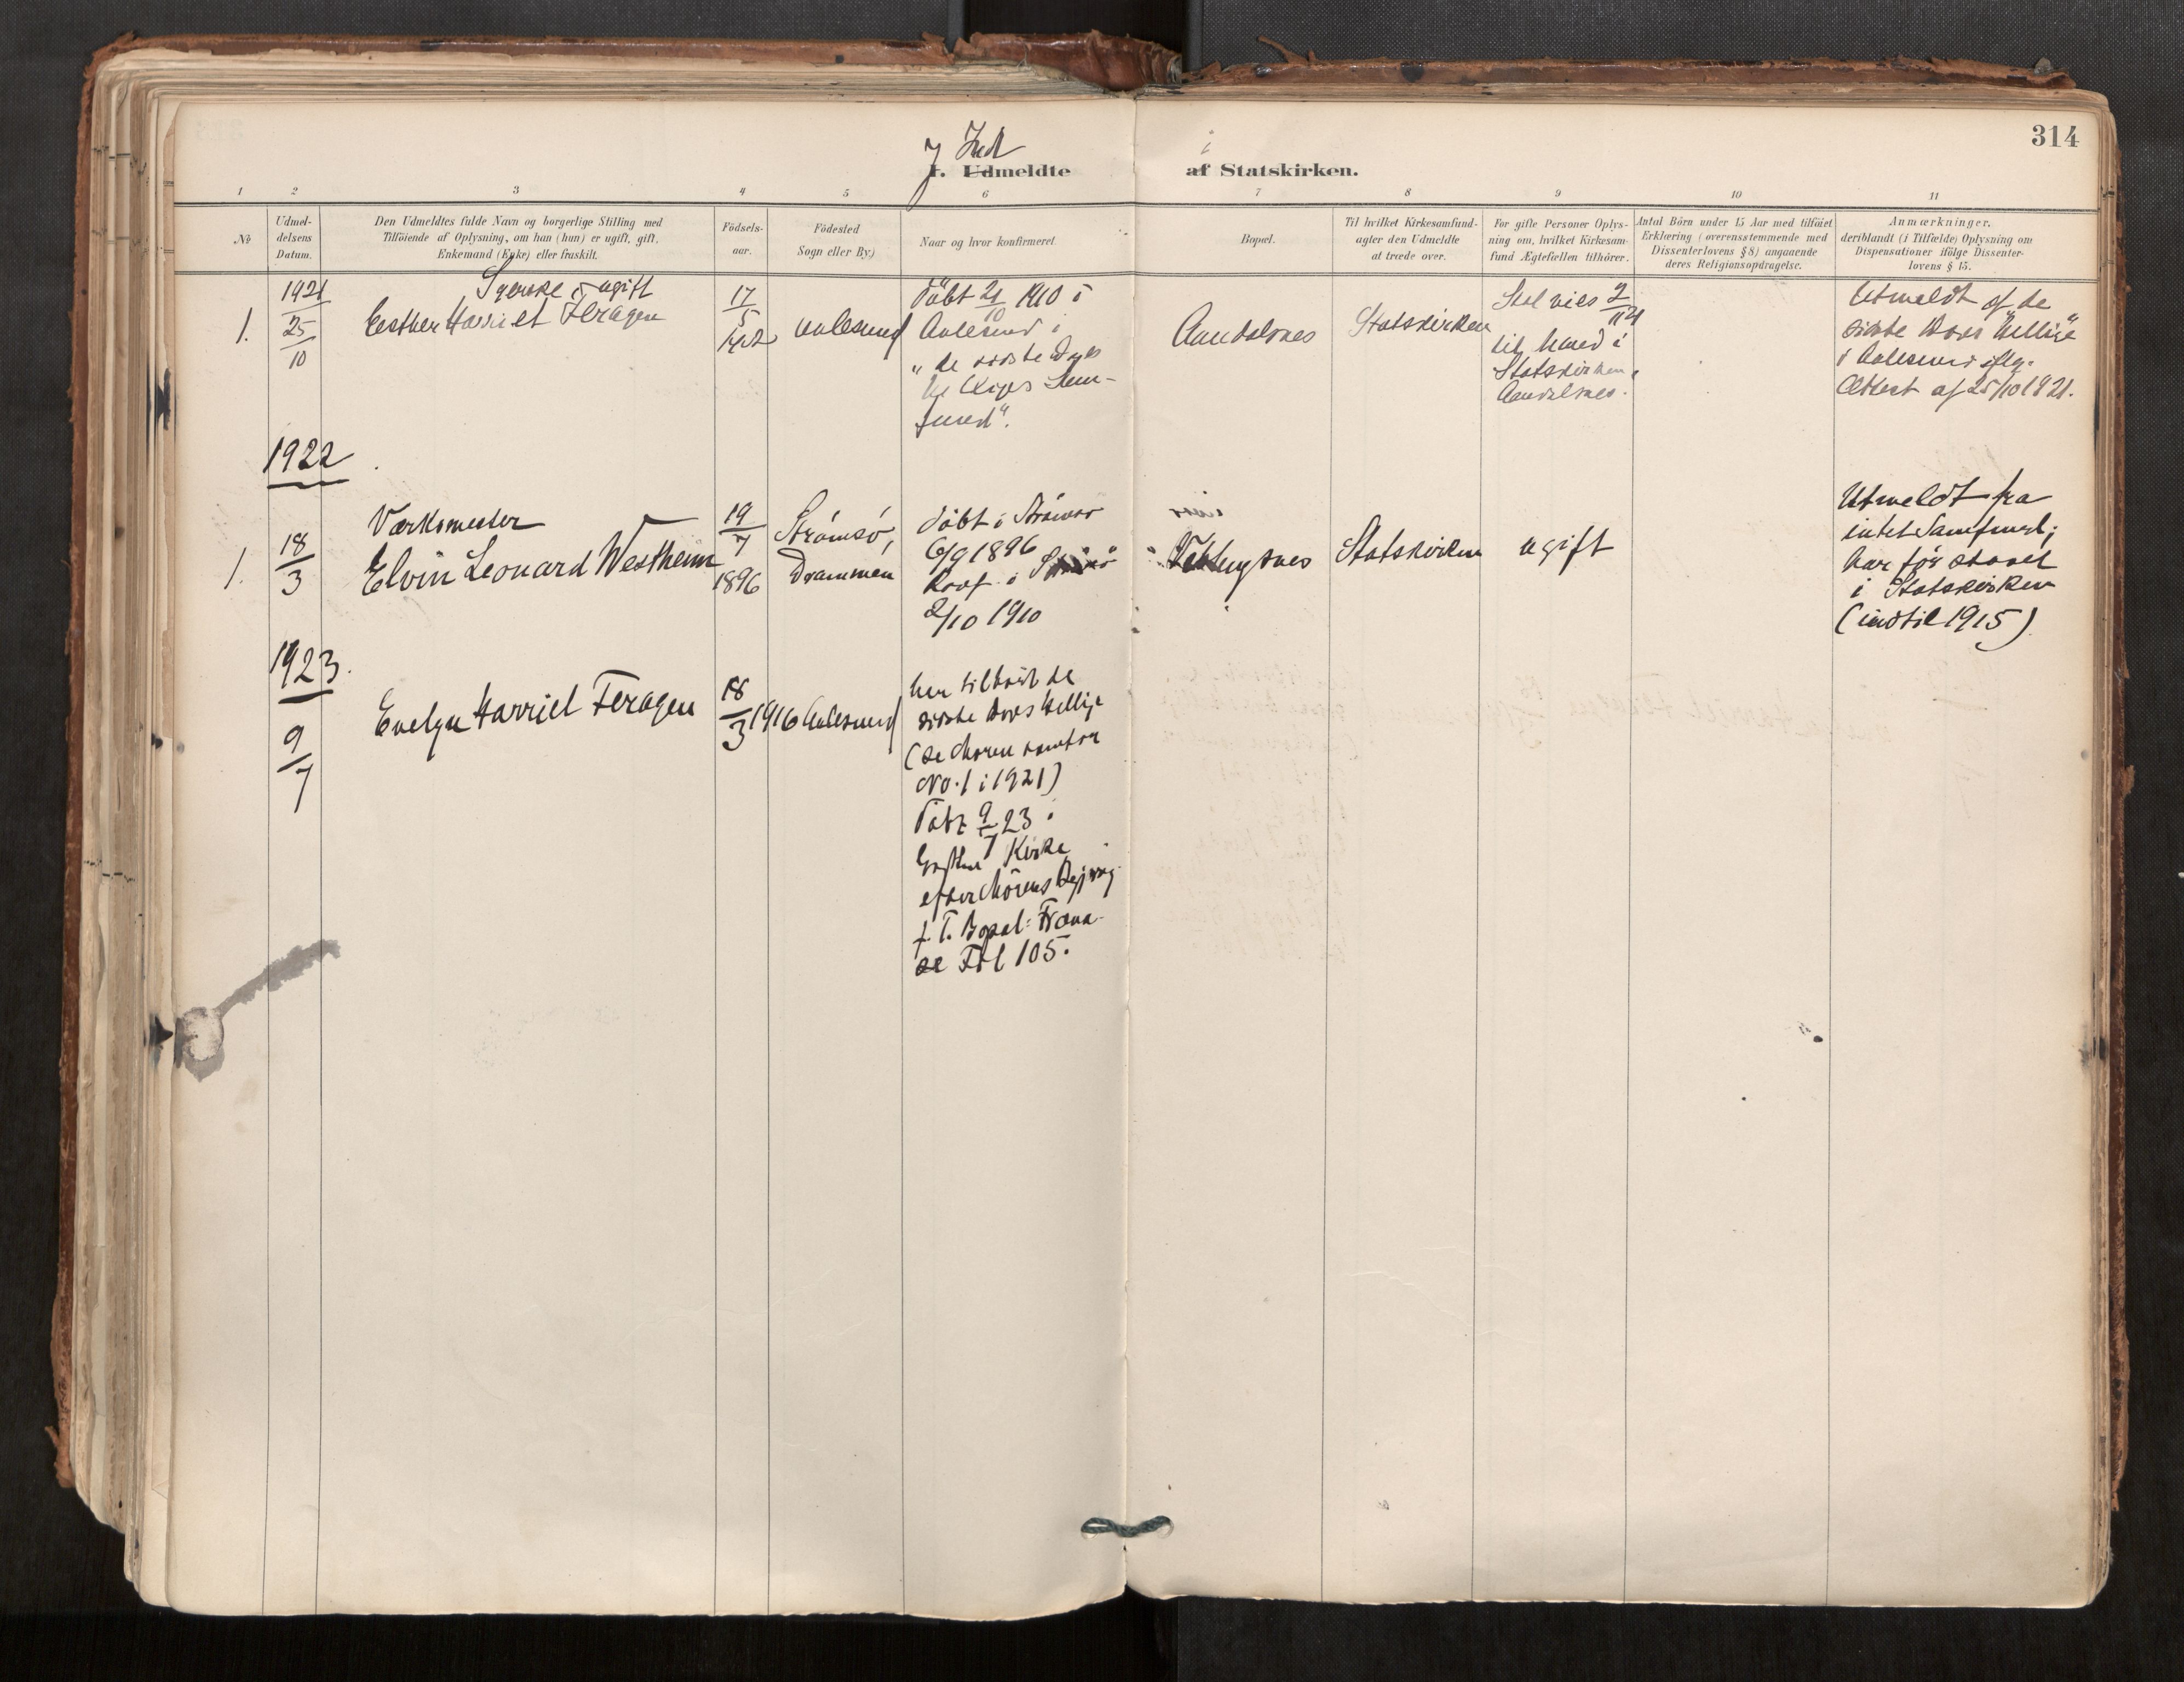 314
J. Ind i
I. Udmeldte af Statskirken.
1 2 3 4 5 6 7 8 9 10 11
№
Udmel-
delsens
Datum.
Den Udmeldtes fulde Navn og borgerlige Stilling med
Tilföiende af Oplysning, om han (hun) er ugift, gift,
Enkemand (Enke) eller fraskilt.
Födsels-
aar.
Födested
Sogn eller By)
Naar og hvor konfirmeret.
Bopæl.
Til hvilket Kirkesamfund-
agter den Udmeldte
at træde over.
For gifte Personer Oplys-
ning om, hvilket Kirkesam-
fund Ægtefællen tilhörer.
Antal Börn under 15 Aar med tilföiet
Erklæring (overensstemmende med
Dissenterlovens § 8) angaaende
deres Religionsopdragelse.
Anmærkninger,
deriblandt (i Tilfælde) Oplysning om
Dispensationer ifölge Dissenter-
lovens § 15.
1.
1921
25/10
ugift
Esther Harriet Feragen
17/5
Aalesund
döbt 21/10 1910 i
Aalesund i
"de sidste Dages
Helliges Sam-
fund".
Aandalsnes
Statskirken
Skal vies 2/11 21
til mand i
Statskirken,
Aandalsnes.
Utmeldt af "de
sidste Dages Hellige"
i Aalesund iflg.
Attest af 25/10 1921.
1922
1.
18/3
Værksmester
Elvin Leonard Westheim
19/7
1896
Strömsö,
Drammen
döbt i Strömsö
6/9 1896
Konf. i Strömsö
2/10 1910
Statskirken
ugift
Utmeldt fra
intet Samfund;
har för staaet
i Statskirken
(indtil 1915)
1923.
9/7
Evelyn Harriet Feragen
18/3 1916
Aalesund
har tilhört de
sidste Dages Hellige
(se Moren
No. 1 i 1921)
Döbt 9/7 23 i
Kirke
efter Morens
f. T. Bopæl:
se Fol 105.